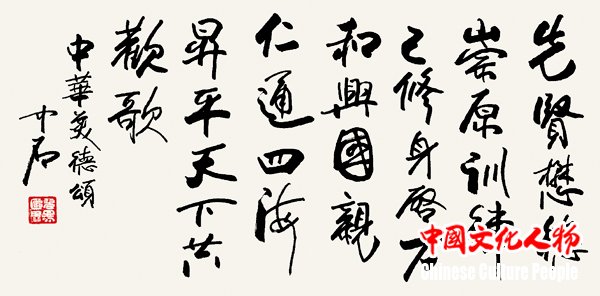 先賢懋績
崇原训律
己修身啓
和興國親
仁通四海
昇平天下共
歡歌
中華美德頌
中石
中國文化人物
Chinese Culture People